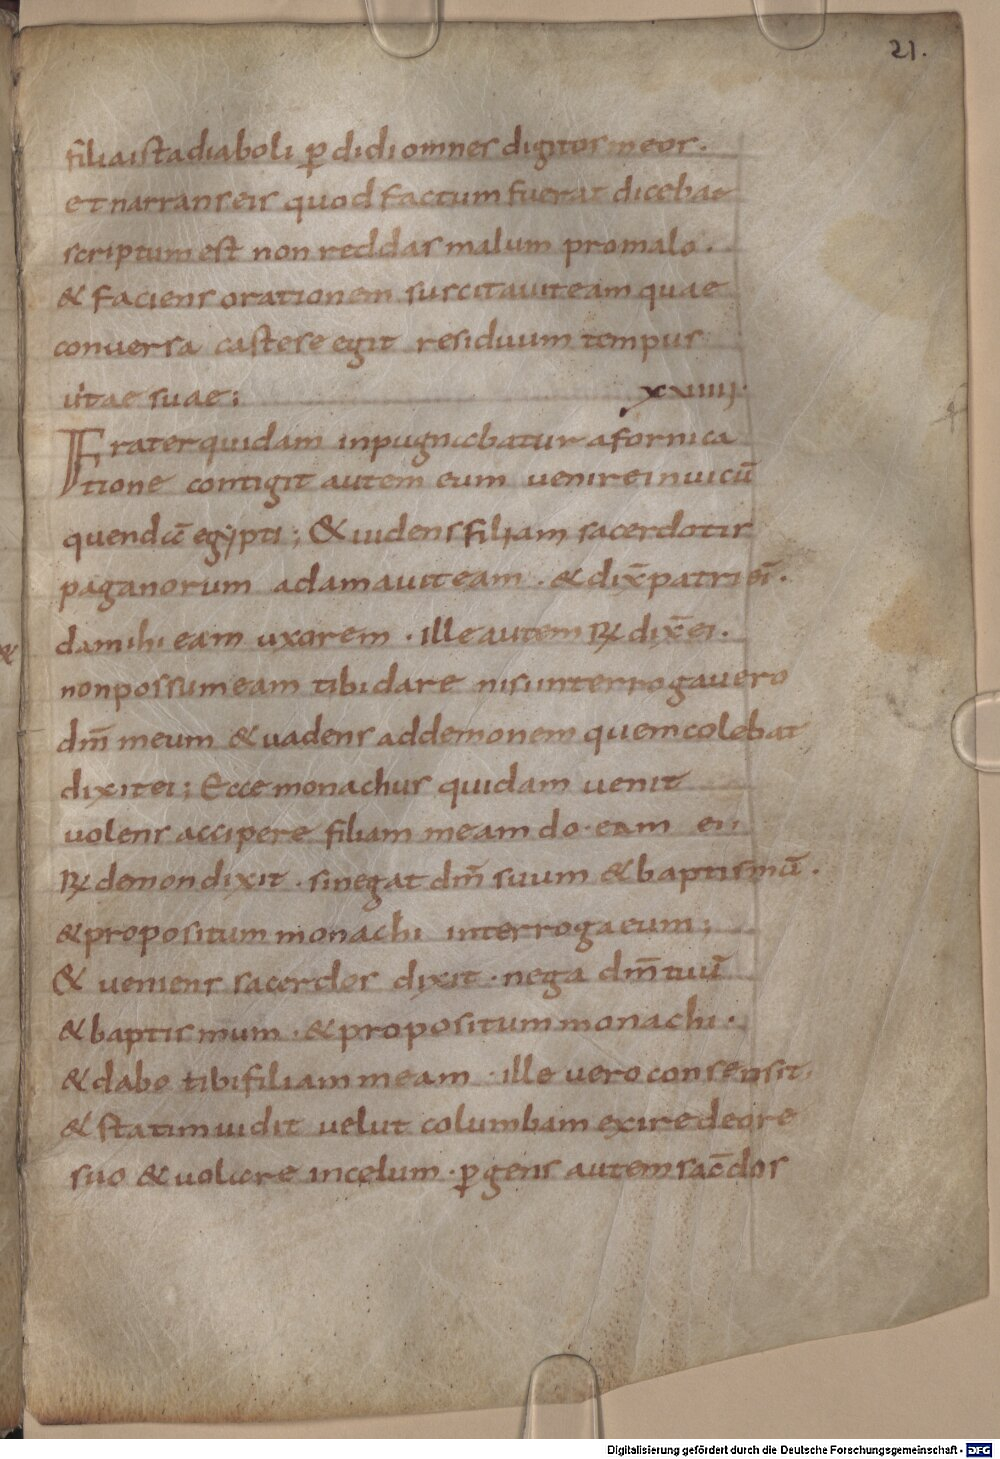 21.
filia ista diaboli ꝑdidi omnes digitos meos.
et narrans eis quod factum fuerat dicebat
scriptum est non reddas malum pro malo.
& faciens orationem suscitauit eam quae
conversa caste se egit residuum tempus
uitae suae;
xxiiii.
Frater quidam inpugnabatur a fornica
tione contigit autem eum venire in uicū
quendā egypti; & uidens filiam sacerdotis
paganorum adamauit eam. & dix̄ patri ei.
da mihi eam uxorem. ille autem R̷ dix̄ ei.
non possum eam tibi dare nisi interrogauero
dm̄ meum & uadens ad demonem quem colebat
dixit ei; Ecce monachus quidam venit
uolens accipere filiam meam do. eam ei;
R̷ demon dixit. si negat dm̄ suum & baptismū.
& propositum monachi interroga eum;
& ueniens sacerdos dixit. nega dm̄ tuū
& baptismum. & propositum monachi.
& dabo tibi filiam meam. ille vero consensit.
& statim uidit velut columbam exire de ore
suo & uolare in cęlum. ꝑgens autem sac̄dos
Digitalisierung gefördert durch die Deutsche Forschungsgemeinschaft - DFG